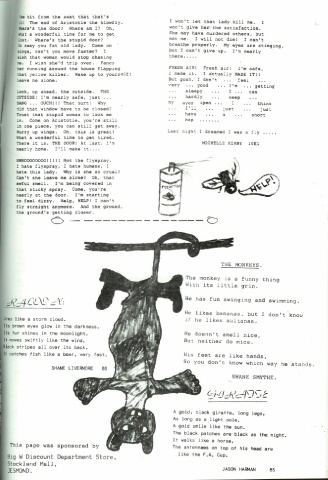 me bit from the swat that that's
it! The end of Aristotle the bluefly.
Where's the door? Where am I? Oh,
what a wonderful time for me to get
lost. Where's the stupid door?
Go away you fat old lady. Come on
wings, can't you move faster? I
wish that woman would stop chasing
me. I wish she'd trip over. Fancy
her running around the house flapping
that yellow killer. Wake up to yourself!
Leave me alone.
Look, up ahead, the outside. THE
OUTSIDE! I'm nearly safe, just ...
BANG ... OUCH!!! That hurt! Why
did that window have to be closed?
Trust that stupid woman to look me
in. Come on Aristotle, you're still
in one piece, you can still get away.
Hurry up wings. Oh, this is great!
What a wonderful time to get tired.
There it is. THE DOOR! At last. I'm
nearly home. I'll make it...
Not the flyspray.
I hate flyspray, I hate humans. I
hate this lady. Why is she so cruel?
Can't she leave me alone? Oh, that
awful smell. I'm being covered in
that sticky spray. Come, you're
nearly at the door. I'm starting
to feel dizzy. Help, HELP! I can't
fly straight anymore. And the ground,
the ground's getting closer.
I won't let that lady kill me. I
won't give her the satisfaction.
She may have murdered others, but
not me. I will not die! I can't
breathe properly. My eyes are stinging,
but I can't give up. I'm nearly
there.....
FRESH AIR! Fresh air! I'm safe,
I made it. I actually MADE IT!!
But gosh, I don't ... feel ...
very ... good ... I'm ... getting
... sleepy ... I ... can
... hardly ... keep ...
my ... eyes open ... I ... think
... I'll ... just ...
... have ... a ... short
... nap .......
Last night I dreamed I was a fly ....
MICHELLE KIRBY 10E1
HELP!
THE MONKEYS.
The monkey is a funny thing
With its little grin.
He has fun swinging and swimming.
He likes bananas, but I don't know
if he likes sultanas.
He doesn't smell nice,
But neither do mice.
His feet are like hands,
So you don't know which way he stands.
SHANE SMYTHE.
Grey like a storm cloud.
Its brown eyes glow in the darkness.
Its fur shines in the moonlight,
It moves swiftly like the wind,
Black stripes all over its back,
It catches fish like a bear, very fast.
SHANE LIVERMORE 8S
GIRAFFE
A gold, black giraffe, long legs,
As long as a light pole,
A gold smile like the sun.
The black patches are black as the night.
It walks like a horse.
The antennaes on top of his head are
like the F.A. Cup.
JASON HARMAN 8S
This page was sponsored by
Big W Discount Department Store,
Stockland Mall,
JESMOND.